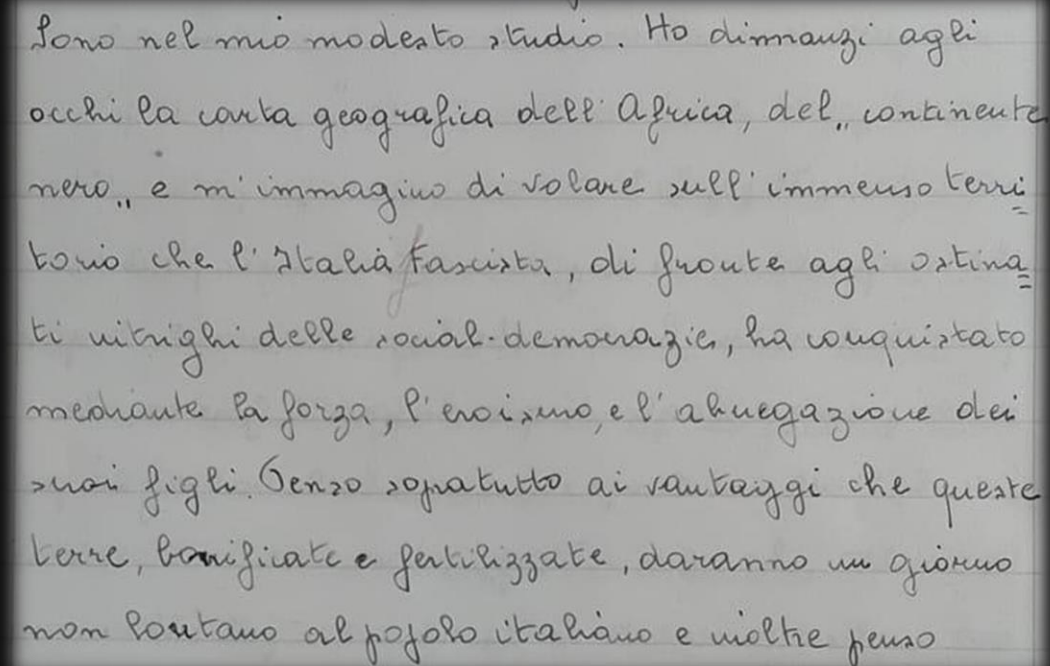 Sono nel mio modesto studio. Ho dinnanzi agli
occhi la carta geografica dell'Africa, del „ continente
nero „ e m'immagino di volare sull'immenso terri=
torio che l'Italia Fascista, di fronte agli ostina=
ti intrighi delle social-democrazie, ha conquistato
mediante la forza, l'eroismo, e l'abnegazione dei
suoi figli. Penso sopratutto ai vantaggi che queste
terre, bonificate e fertilizzate, daranno un giorno
non lontano al popolo italiano e inoltre penso